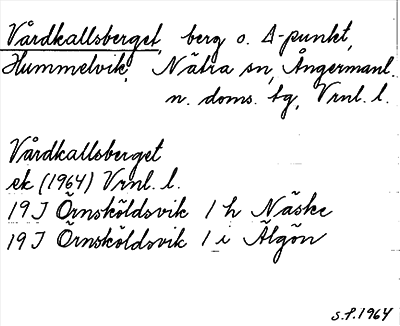 Vårdkallsberget, berg o. Δ-punkt,
Hummelvik, Nätra sn, Ångermanl.
n. doms. tg, Vrnl. l.
Vårdkallsberget
ek (1964) Vrnl. l.
19J Örnsköldsvik 1 h Näske
19J Örnsköldsvik 1 i Älgön
s.f. 1964